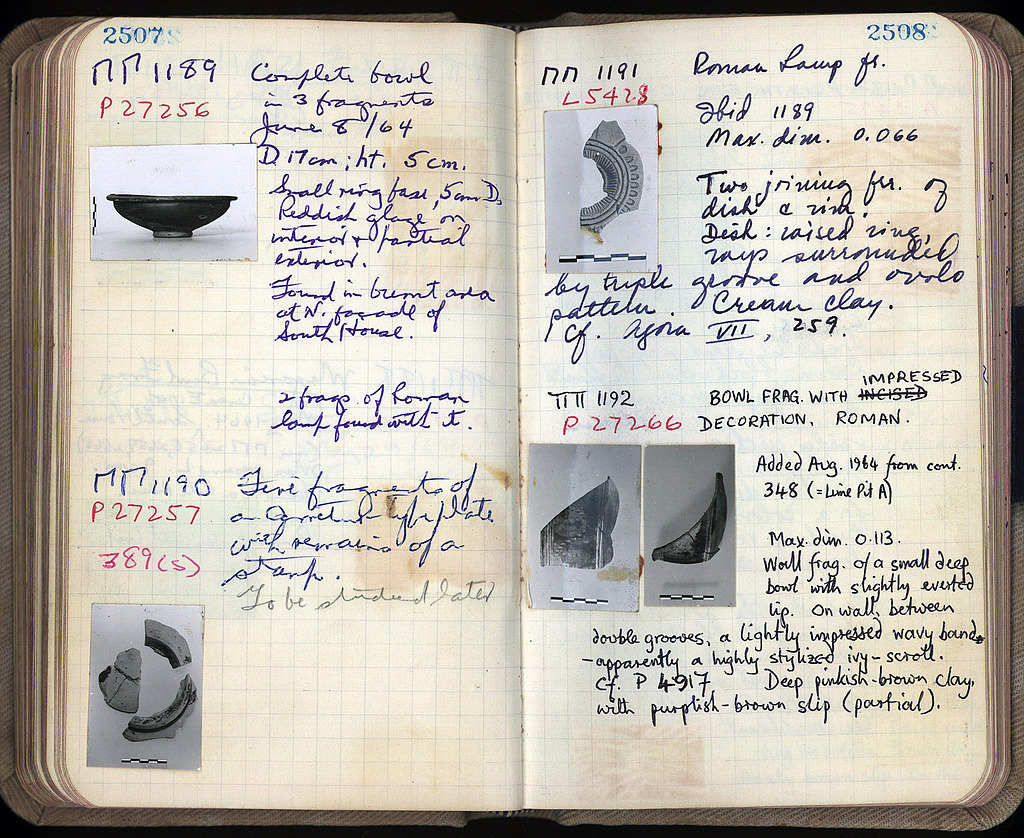 2507
ΠΠ 1189
P 27256
Complete bowl
in 3 fragments
June 8 /64
D. 17cm; ht. 5 cm.
Small ring base, 5cm D.
Reddish glaze on
interior & partial
exterior.
Found in burnt area
at N. façade of
South House.
2 frags of Roman
lamp found with it.
ΠΠ 1190
P 27257
389(S)
Five fragments of
a Arretine-type plate
with remains of a
stamp.
To be studied later
2508
ΠΠ 1191
L5428
Roman Lamp fr.
Ibid 1189
Max. dim. 0.066
Two joining frr. of
dish & rim.
Dish: raised ring,
rays surrounded
by triple groove and ovolo
pattern. Cream clay.
Cf. Agora VII, 259.
ΠΠ 1192
P 27266
IMPRESSED
BOWL FRAG. WITH INCISED
DECORATION, ROMAN.
Added Aug. 1964 from cont.
348 (= Lime Pit A)
Max. dim. 0.113.
Wall frag. of a small deep
bowl with slightly everted
lip. On wall, between
double grooves, a lightly impressed wavy band,
- apparently a highly stylized ivy-scroll.
Cf. P 4917 Deep pinkish-brown clay,
with purplish-brown slip (partial).